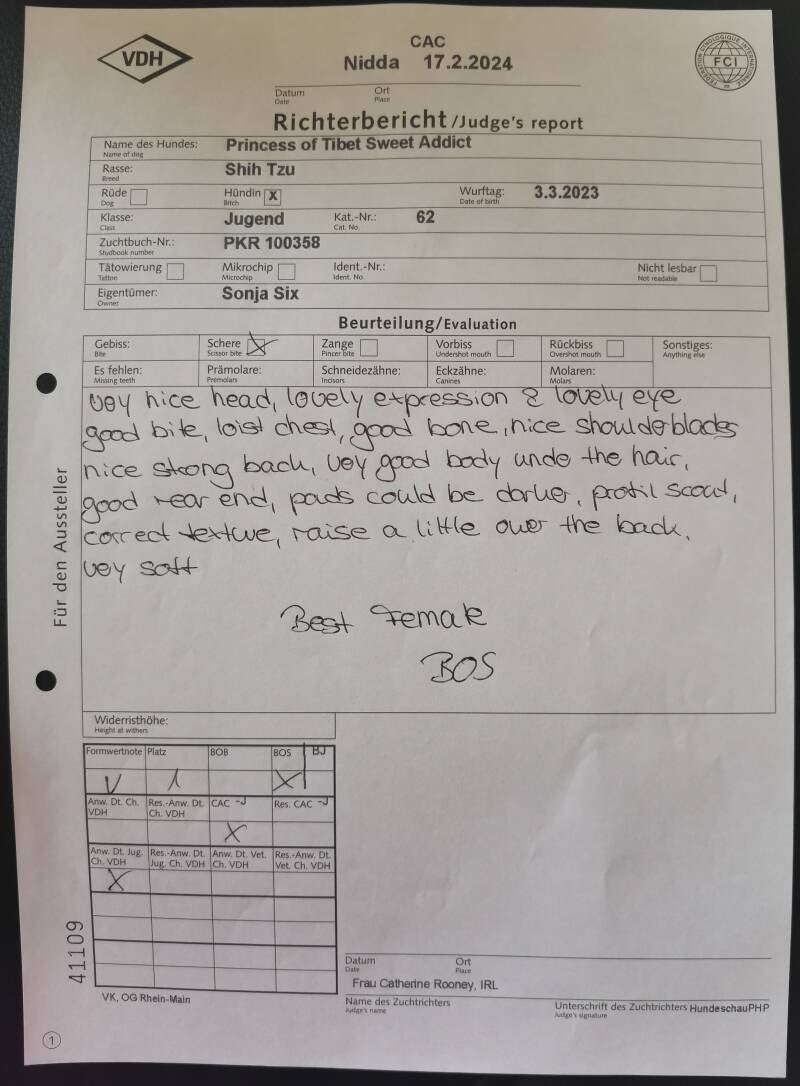 VDH
CAC
Nidda 17.2.2024
FEDERATION CYNOLOGIQUE INTERNATIONALE
FCI
Datum Ort
Date Place
Richterbericht/Judge's report
Name des Hundes: Princess of Tibet Sweet Addict
Name of dog
Rasse: Shih Tzu
Breed
Rüde Hündin X Wurftag: 3.3.2023
Dog Bitch Date of birth
Klasse: Jugend Kat.-Nr.: 62
Class Cat. No.
Zuchtbuch-Nr.: PKR 100358
Studbook number
Tätowierung Mikrochip Ident.-Nr.: Nicht lesbar
Tattoo Microchip Ident. No. Not readable
Eigentümer: Sonja Six
Owner
Beurteilung/Evaluation
Gebiss: Schere X Zange Vorbiss Rückbiss Sonstiges:
Bite Scissor bite Pincer bite Undershot mouth Overshot mouth Anything else
Es fehlen: Prämolare: Schneidezähne: Eckzähne: Molaren:
Missing teeth Premolars Incisors Canines Molars
vey nice head, lovely expression & lovely eye
good bite, loist chest, good bone, nice shoulderblads
nice strong back, vey good body unde the hair,
good rear end, pads could be darker, protil scout,
correct textue, raise a little over the back,
vey soft
Best Female
BOS
Für den Aussteller
Widerristhöhe:
Height at withers
Formwertnote Platz BOB BOS BJ
V 1 X
Anw. Dt. Ch. VDH Res.-Anw. Dt. Ch. VDH CAC -J Res. CAC -J
X
Anw. Dt. Jug. Ch. VDH Res.-Anw. Dt. Jug. Ch. VDH Anw. Dt. Vet. Ch. VDH Res.-Anw. Dt. Vet. Ch. VDH
X
41109
VK, OG Rhein-Main
Datum Ort
Date Place
Frau Catherine Rooney, IRL
Name des Zuchtrichters Unterschrift des Zuchtrichters HundeschauPHP
Judge's name Judge's signature
1